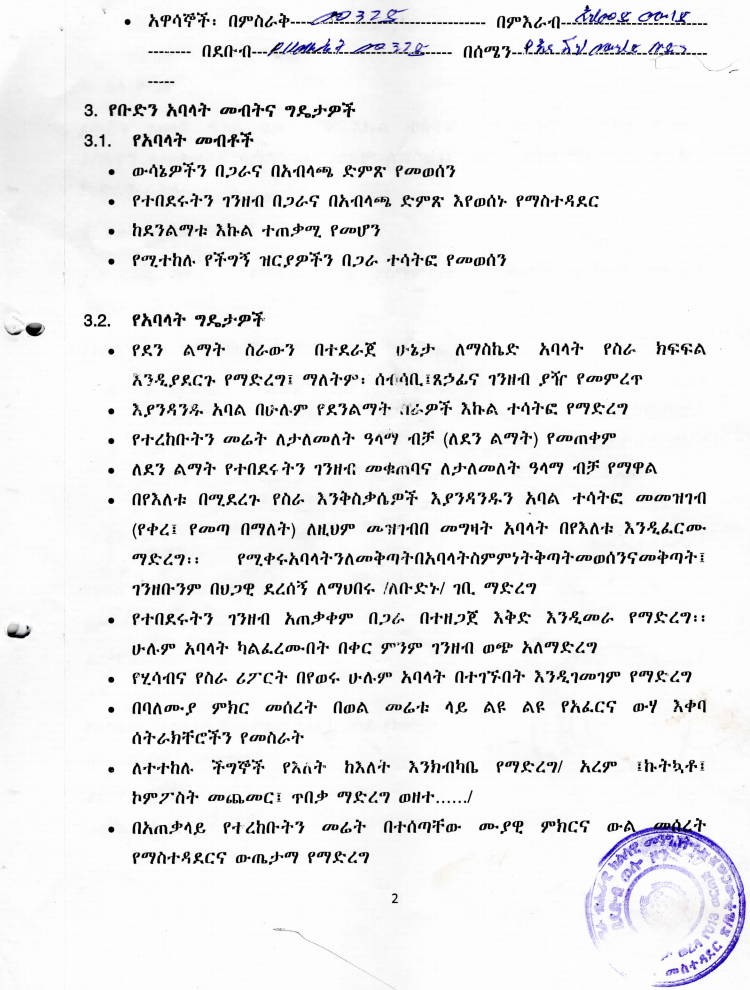 • አዋሳኞች፡ በምስራቅ--- መንገድ --- በምእራብ---
--- በደቡብ--- መንገድ --- በሰሜን---
-----
3. የቡድን አባላት መብትና ግዴታዎች
3.1. የአባላት መብቶች
• ውሳኔዎችን በጋራና በአብላጫ ድምጽ የመወሰን
• የተበደሩትን ገንዘብ በጋራና በአብላጫ ድምጽ እየወሰኑ የማስተዳደር
• ከደንልማቱ እኩል ተጠቃሚ የመሆን
• የሚተከሉ የችግኝ ዝርያዎችን በጋራ ተሳትፎ የመወሰን
3.2. የአባላት ግዴታዎች
• የደን ልማት ስራውን በተደራጀ ሁኔታ ለማስኬድ አባላት የስራ ክፍፍል
እንዲያደርጉ የማድረግ፤ ማለትም፡ ሰብሳቢ፤ጸኃፊና ገንዘብ ያዥ የመምረጥ
• እያንዳንዱ አባል በሁሉም የደንልማት ስራዎች እኩል ተሳትፎ የማድረግ
• የተረከቡትን መሬት ለታለመለት ዓላማ ብቻ (ለደን ልማት) የመጠቀም
• ለደን ልማት የተበደሩትን ገንዘብ መቁጠባና ለታለመለት ዓላማ ብቻ የማዋል
• በየእለቱ በሚደረጉ የስራ እንቅስቃሴዎች እያንዳንዱን አባል ተሳትፎ መመዝገብ
(የቀረ፤ የመጣ በማለት) ለዚህም መዝገብበ መግዛት አባላት በየእለቱ እንዲፈርሙ
ማድረግ፡፡ የሚቀሩአባላትንለመቅጣትበአባላትስምምነትቅጣትመወሰንናመቅጣት፤
ገንዘቡንም በህጋዊ ደረሰኝ ለማህበሩ /ለቡድኑ/ ገቢ ማድረግ
• የተበደሩትን ገንዘብ አጠቃቀም በጋራ በተዘጋጀ እቅድ እንዲመራ የማድረግ፡፡
ሁሉም አባላት ካልፈረሙበት በቀር ምንም ገንዘብ ወጭ አለማድረግ
• የሂሳብና የስራ ሪፖርት በየወሩ ሁሉም አባላት በተገኙበት እንዲገመገም የማድረግ
• በባለሙያ ምክር መሰረት በወል መሬቱ ላይ ልዩ ልዩ የአፈርና ውሃ እቀባ
ሰትራክቸሮችን የመስራት
• ለተተከሉ ችግኞች የእለት ከእለት እንክብካቤ የማድረግ/ አረም ፤ኩትኳቶ፤
ኮምፖስት መጨመር፤ ጥበቃ ማድረግ ወዘተ....../
• በአጠቃላይ የተረከቡትን መሬት በተሰጣቸው ሙያዊ ምክርና ውል መሰረት
የማስተዳደርና ውጤታማ የማድረግ
2